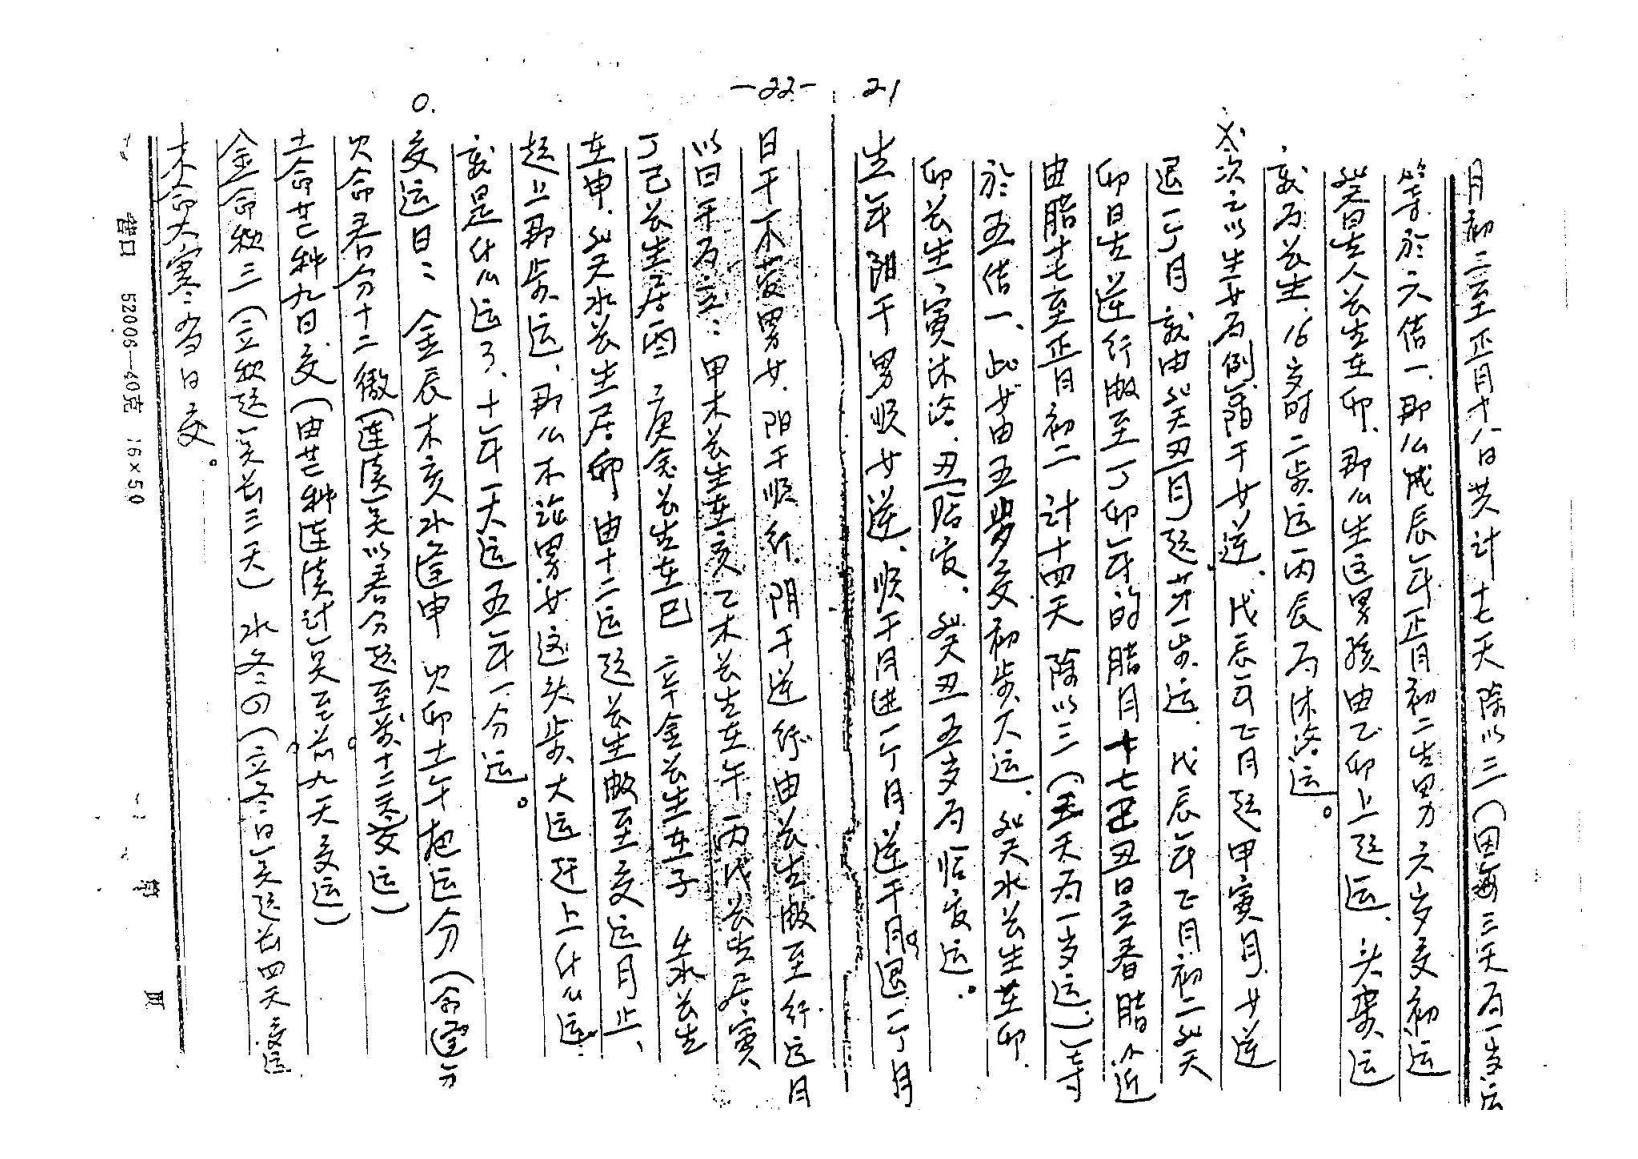 21
月初二至正月十八日共计十七天除以三（因每三天为一岁运
等於六佶一、那么戊辰年正月初二生男六岁交初运
癸日生人长生在卯、那么生这男孩由乙卯上起运、头步运
就为长生、16岁时二步运丙辰为沐浴运。
其次之以生女为例、阳干女逆、戊辰年正月起甲寅月女逆
退一个月就由癸丑月起才一步运、戊辰年正月初二癸
卯日生逆行 至丁卯年的腊月十七 丑日立春 近
由腊十七至正月初二计十四天除以三（三天为一岁运）等
於五佶一、此女由五岁交初步大运、癸水长生在卯
卯长生、寅沐浴、丑 、癸丑五岁为 运。
生年阳干男顺女逆、顺干月进一个月逆干月退一个月
-22-
日干不管男女、阳干顺行、阴干逆行由长生 至行运月
以日干为主：甲木长生在亥乙木长生在午、丙戊长生居寅
丁己长生居酉 庚金长生在巳 辛金长生在子 壬水长生
在申、癸水长生居卯 由十二运起长生 至交运月止、
起上那步运、那么不论男女这头步大运 上什么运
就是什么运了、十年一大运五年一分运。
交运日：金辰木亥水逢申 火卯土午把运分（命逢分
火命春分十二彻（连清 以春分起至 十二天交运）
土命芒种九日交（由芒种连清计 至 九天交运）
金命秋三（立秋起 三天）水冬四（立冬日 起 四天交运
木命大寒 当日交。
营口 52006—40克 16×50
第 页